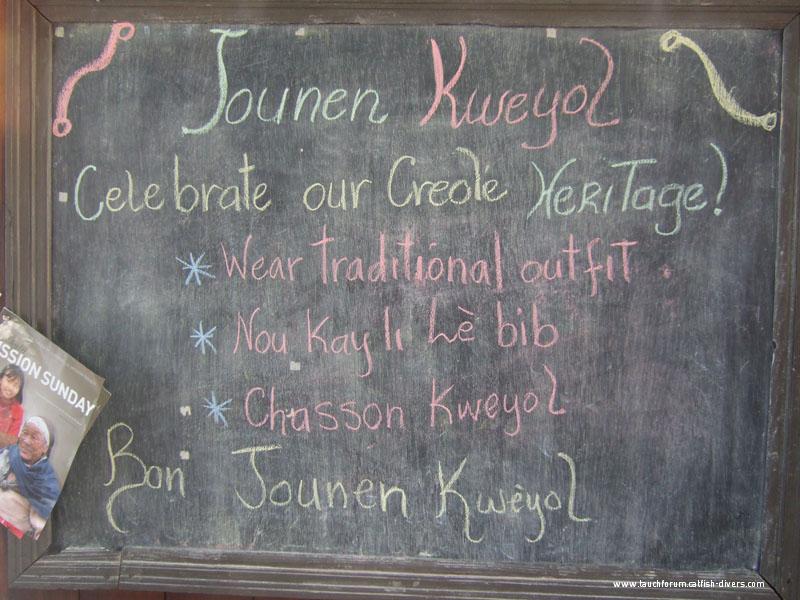 Jounen Kweyol
Celebrate our Creole Heritage!
* Wear traditional outfit.
* Nou Kay li Lè bib
* Chasson Kweyol
Bon Jounen Kwèyol
SSION SUNDAY
www.tauchforum.catfish-divers.com